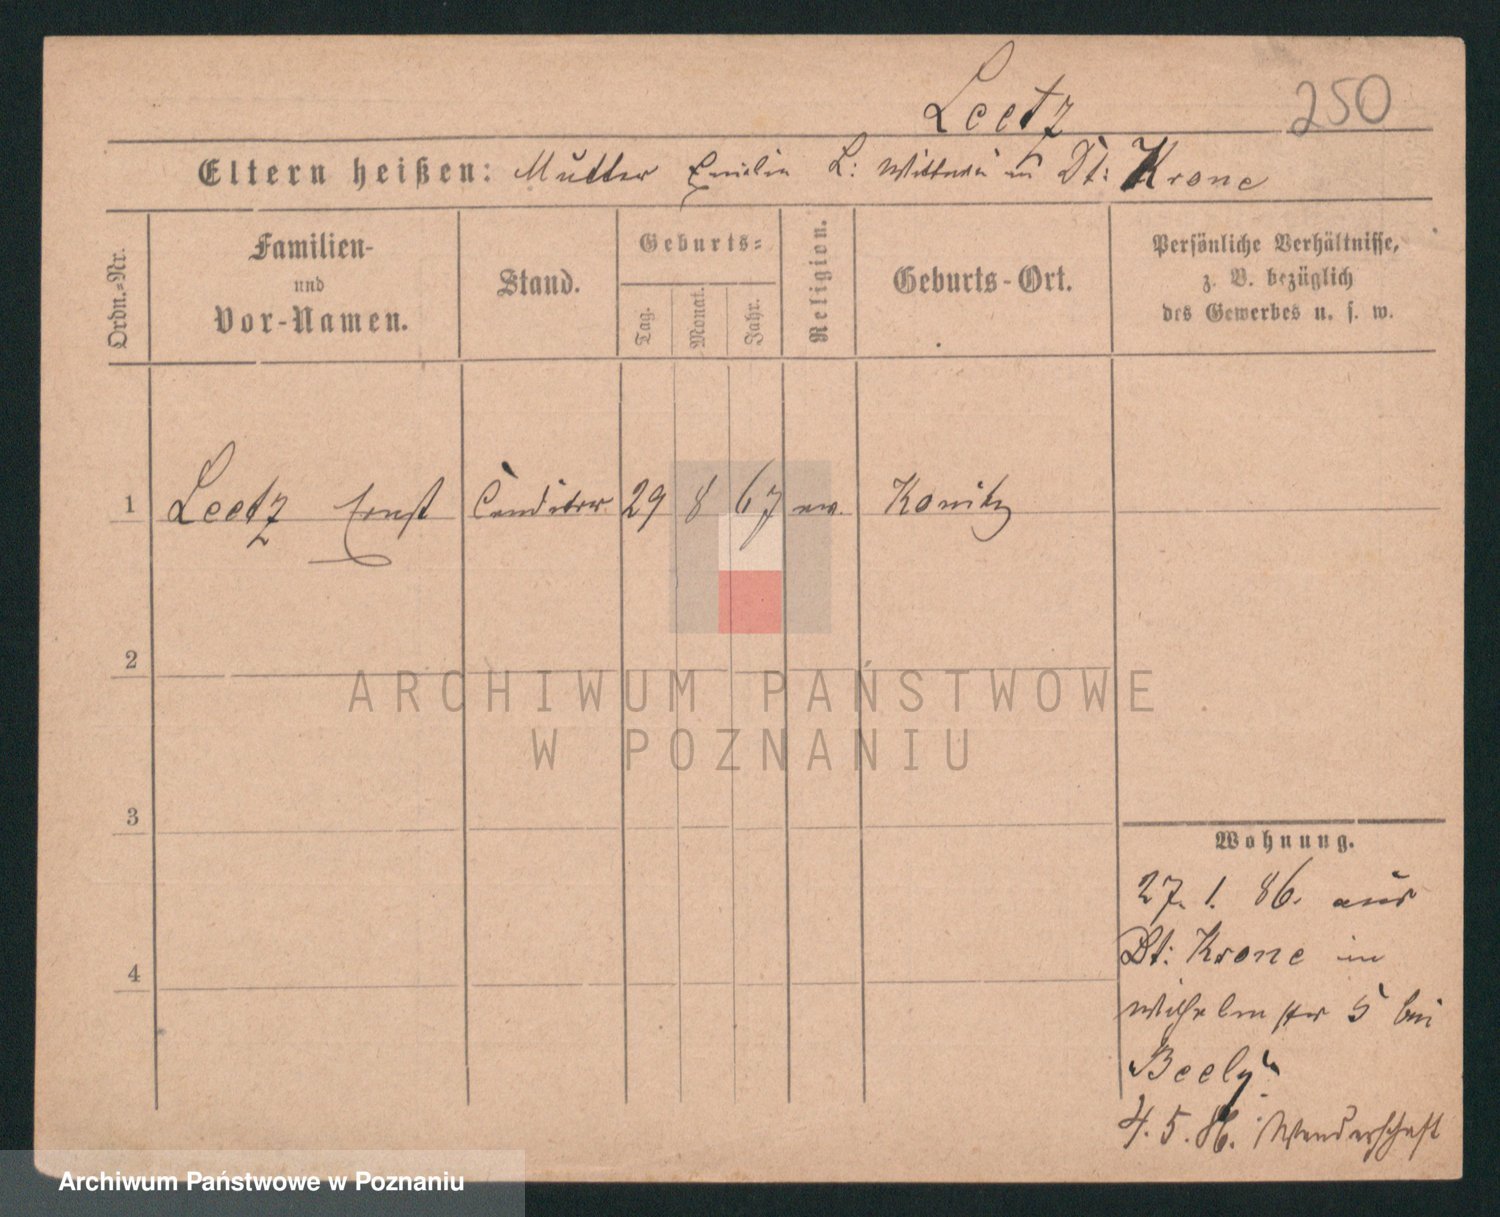 Leetz
250
Eltern heißen: Mutter Emilie L: Wittwe in Dt: Krone
Ordn.-Nr.
Familien-
und
Vor-Namen.
Stand.
Geburts-
Tag.
Monat.
Jahr.
Religion.
Geburts-Ort.
Persönliche Verhältnisse,
z. B. bezüglich
des Gewerbes u. s. w.
1 Leetz Ernst Conditor 29 8 67 ev. Konitz
2
ARCHIWUM PAŃSTWOWE
W POZNANIU
3
4
Wohnung.
27. 1. 86. aus
Dt: Krone in
Wilhelmstr 5 bei
"Beely"
4. 5. 86. Wanderschaft
Archiwum Państwowe w Poznaniu